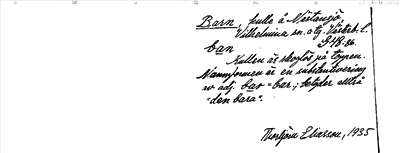 Barn, kulle å Nästansjö,
Vilhelmina sn. o tg. Västerb. l.
ban 948-86.
Kullen är skoglös på toppen.
Namnformen är en substantivering
av adj. bar = bar; betyder alltså
"den bara".
Torbjörn Eliasson, 1935